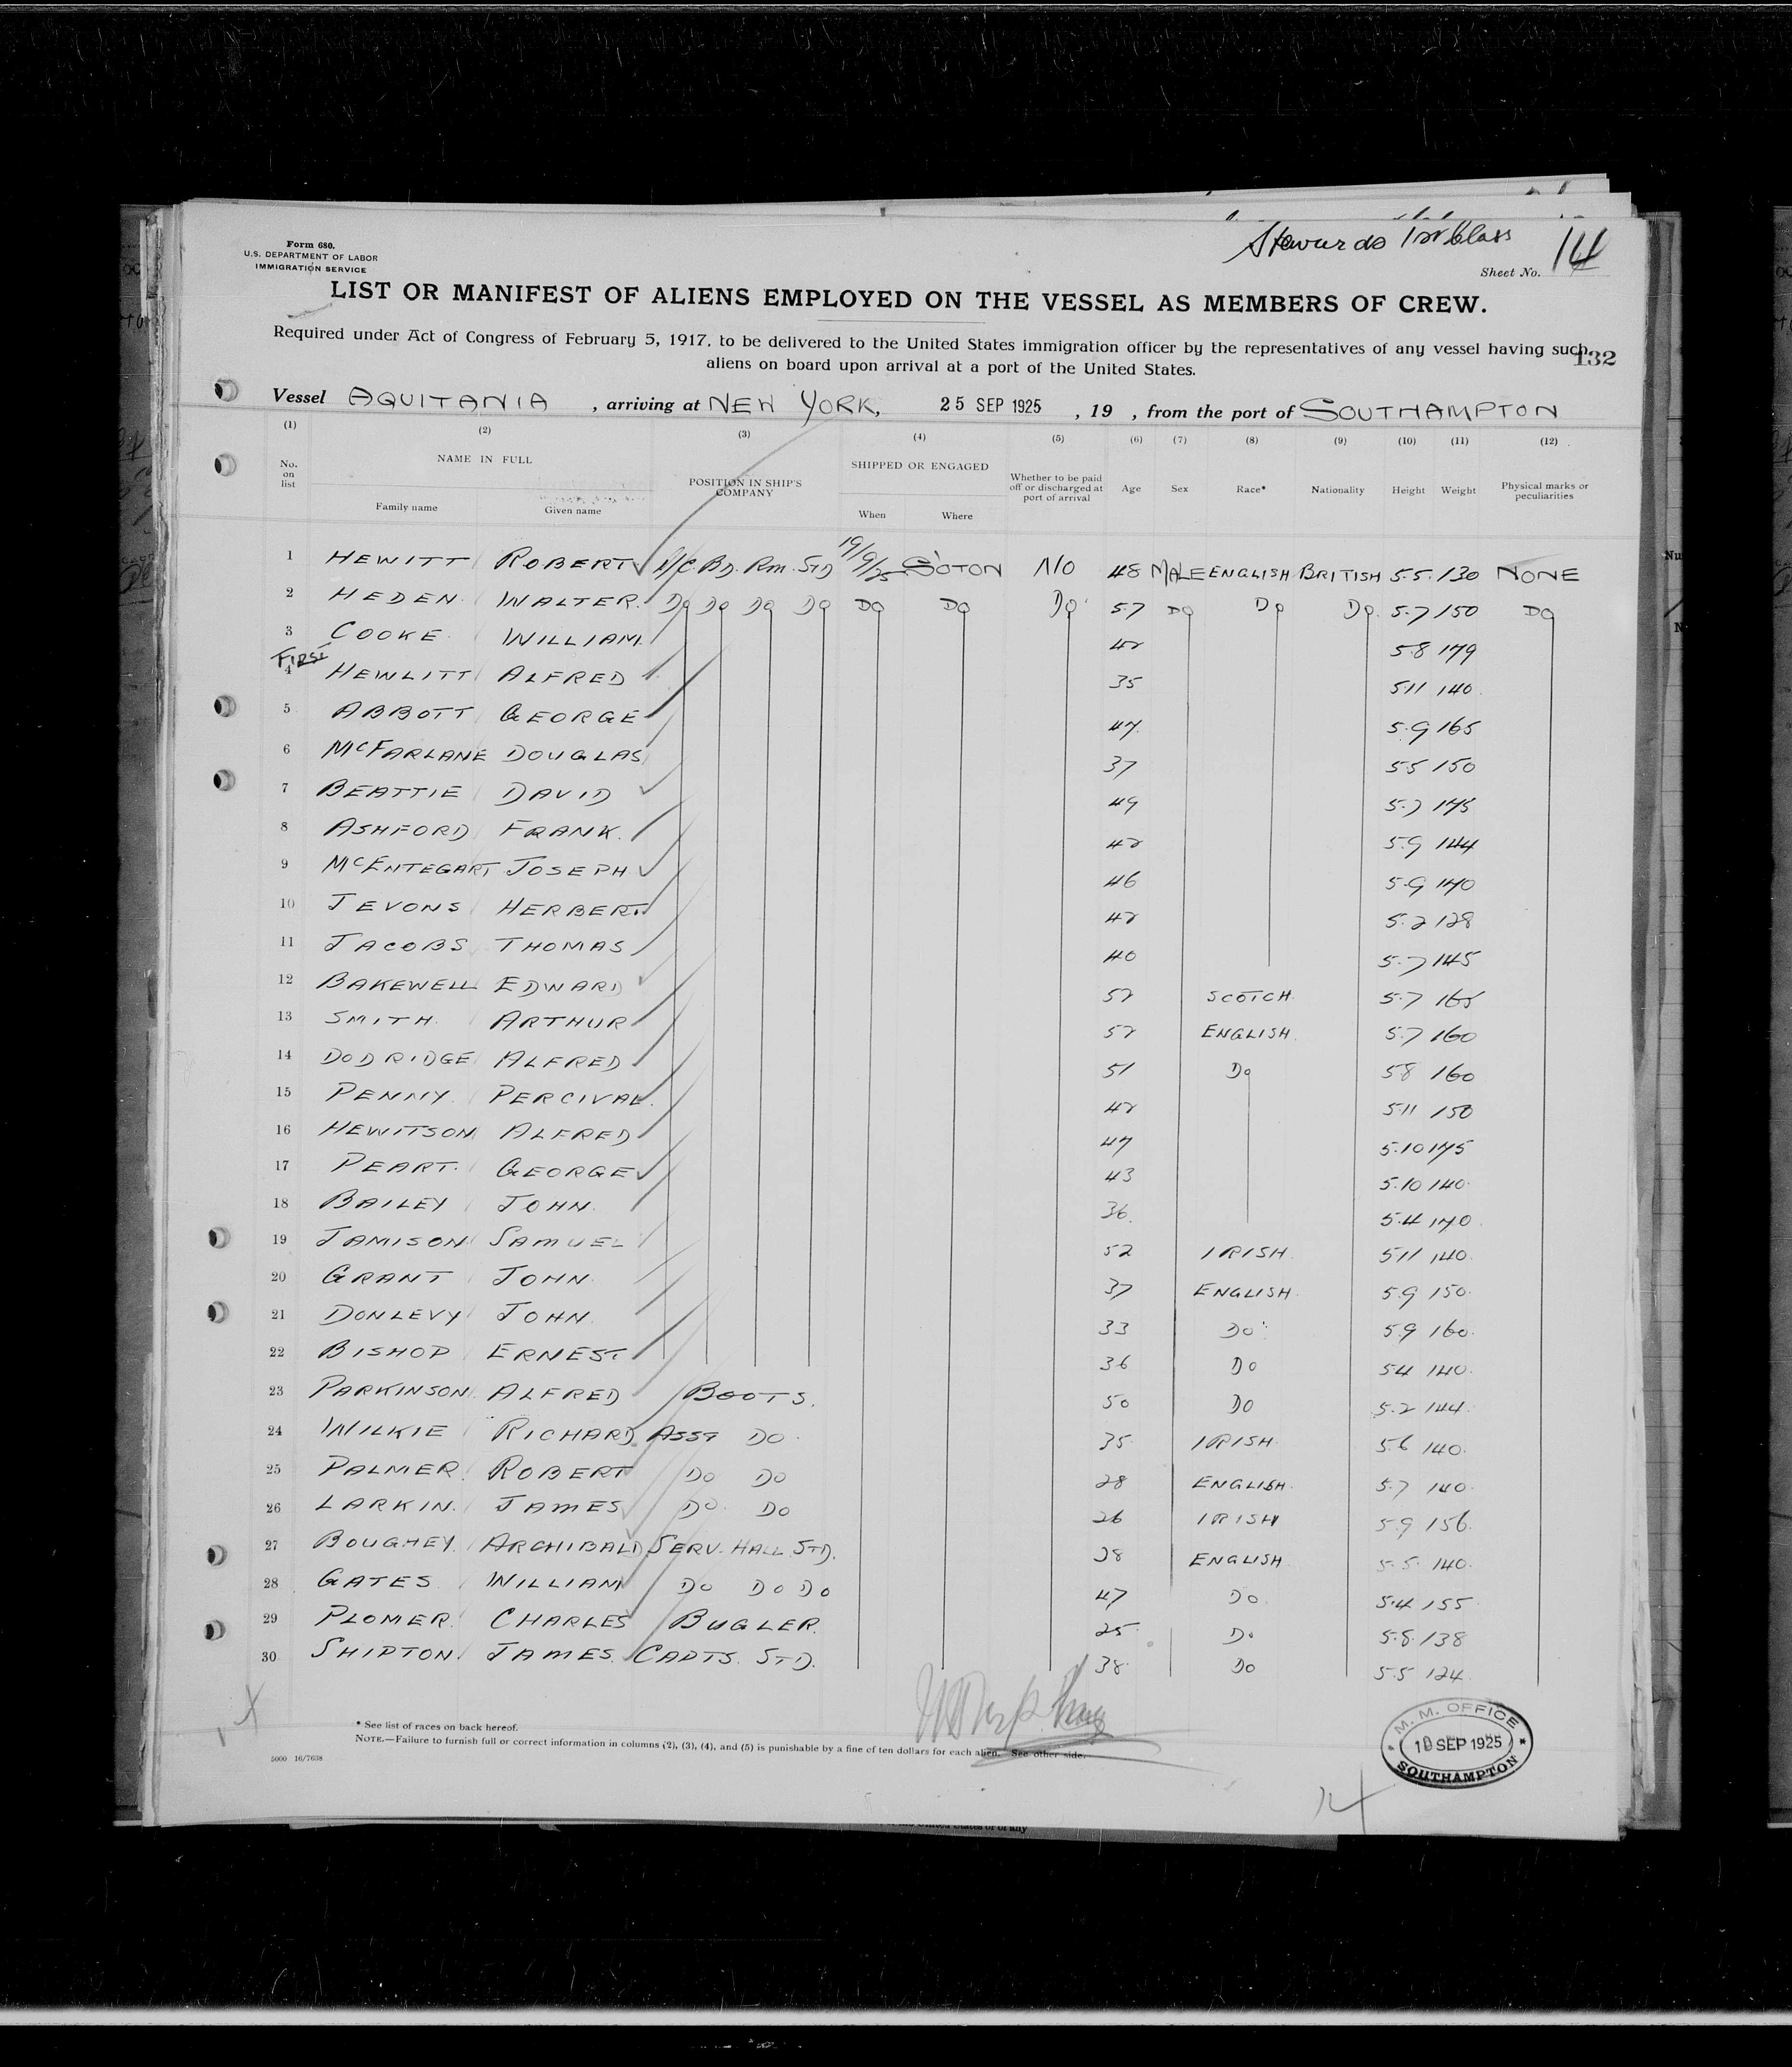 Form 680.
U.S. DEPARTMENT OF LABOR
IMMIGRATION SERVICE
Stewards 1st Class
Sheet No. 14
LIST OR MANIFEST OF ALIENS EMPLOYED ON THE VESSEL AS MEMBERS OF CREW.
Required under Act of Congress of February 5, 1917, to be delivered to the United States immigration officer by the representatives of any vessel having such
aliens on board upon arrival at a port of the United States.
132
Vessel AQUITANIA , arriving at NEW YORK, 25 SEP 1925 , 19 , from the port of SOUTHAMPTON
(1) (2) (3) (4) (5) (6) (7) (8) (9) (10) (11) (12)
No. on list NAME IN FULL Family name Given name POSITION IN SHIP'S COMPANY SHIPPED OR ENGAGED When Where Whether to be paid off or discharged at port of arrival Age Sex Race* Nationality Height Weight Physical marks or peculiarities
1 HEWITT ROBERT 1/C. BD. Rm. STD 19/9/25 S'OTON NO 48 MALE ENGLISH BRITISH 5.5. 130 NONE
2 HEDEN WALTER. DO DO DO DO DO DO DO 57 DO DO DO. 5.7 150 DO
3 COOKE WILLIAM 42 5.8 179
FIRST
4 HEWLITT ALFRED 35 5.11 140
5 ABBOTT GEORGE 47 5.9 165
6 McFARLANE DOUGLAS 37 5.5 150
7 BEATTIE DAVID 49 5.7 175
8 ASHFORD FRANK. 42 5.9 144
9 McENTEGART JOSEPH 46 5.9 140
10 JEVONS HERBERT 42 5.2 128
11 JACOBS THOMAS 40 5.7 145
12 BAKEWELL EDWARD 52 SCOTCH. 5.7 165
13 SMITH. ARTHUR 52 ENGLISH. 5.7 160
14 DODRIDGE ALFRED 51 DO 5.8 160
15 PENNY. PERCIVAL. 42 5.11 150
16 HEWITSON ALFRED 47 5.10 175
17 PEART. GEORGE 43 5.10 140
18 BAILEY JOHN. 36. 5.4 170
19 JAMISON SAMUEL 52 IRISH. 5.11 140
20 GRANT JOHN. 37 ENGLISH. 5.9 150
21 DONLEVY JOHN. 33 DO 5.9 160
22 BISHOP ERNEST 36 DO 5.4 140
23 PARKINSON ALFRED BOOTS. 50 DO 5.2 144
24 WILKIE RICHARD ASST DO. 35 IRISH. 5.6 140
25 PALMER. ROBERT DO DO 28 ENGLISH. 5.7 140
26 LARKIN. JAMES DO. DO 26 IRISH 5.9 156
27 BOUGHEY. ARCHIBALD SERV. HALL. STD. 28 ENGLISH 5.5. 140
28 GATES WILLIAM DO DO DO 47 DO. 5.4 155
29 PLOMER. CHARLES BUGLER. 25 DO 5.8. 138
30 SHIPTON JAMES. CAPTS. STD. 38 DO 5.5 124
* See list of races on back hereof.
NOTE.—Failure to furnish full or correct information in columns (2), (3), (4), and (5) is punishable by a fine of ten dollars for each alien. See other side.
5000 16/7638
M. M. OFFICE
SEP 1925
SOUTHAMPTON